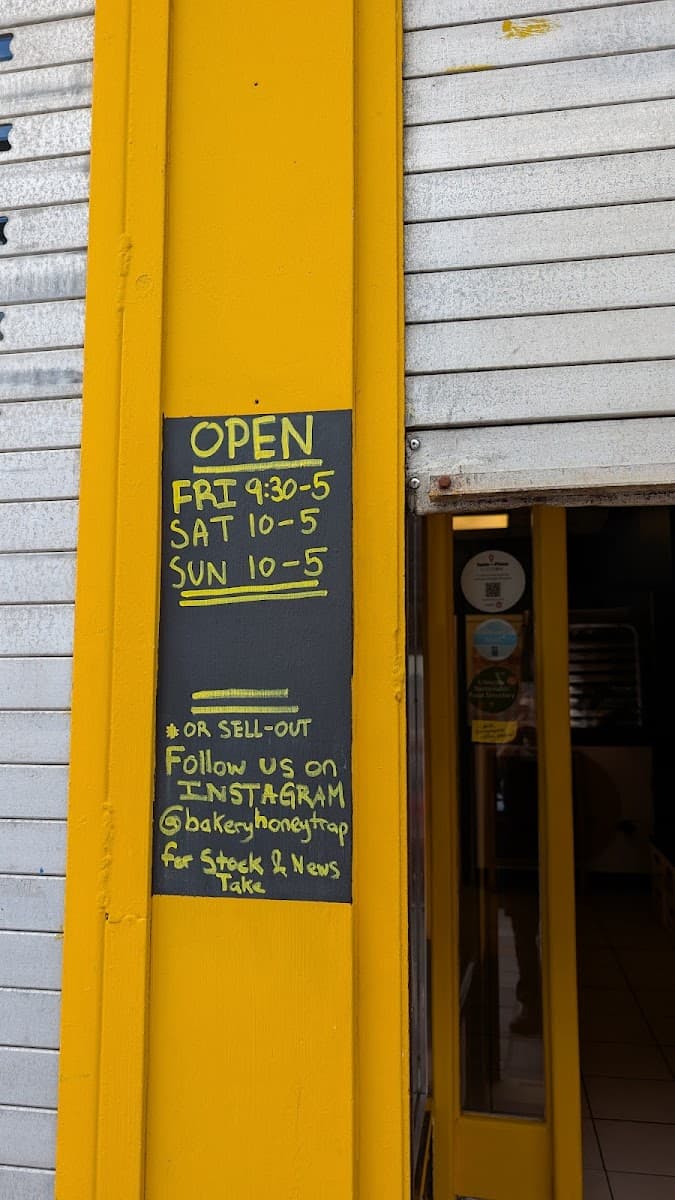 OPEN
FRI 9:30-5
SAT 10-5
SUN 10-5
* OR SELL-OUT
Follow us on
INSTAGRAM
@bakeryhoneytrap
for Stock & News
Take